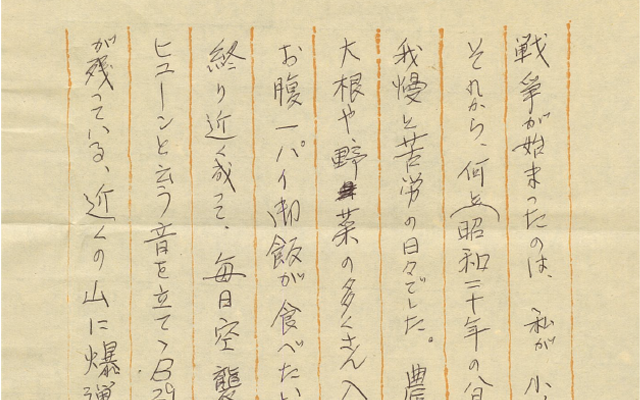 戦争が始まったのは、私が小
それから、何と(昭和二十年の
我慢と苦労の日々でした。農
大根や、野菜の多くさん入
お腹一パイ御飯が食べたい
終り近く成って、毎日空襲
ヒューンと云う音を立てゝB29
が残っている、近くの山に爆弾